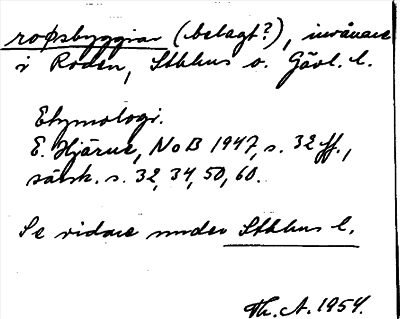 roþsbyggiar (belagt?), invånare
i Roden, Sthlms o. Gävl. l.
Etymologi.
E. Hjärne, NoB 1947, s. 32 ff.,
särsk. s. 32, 34, 50, 60.
Se vidare under Sthlms l.
Th. A. 1954.